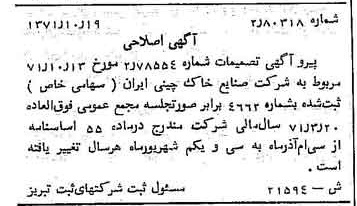 شماره ۲٫۸۰۳۱۸ ۱۳۷۱٫۱۰٫۱۹
آگهی اصلاحی
پیرو آگهی تصمیمات شماره ۲٫۷۸۵۵۴ مورخ ۷۱٫۱۰٫۱۳
مربوط به شرکت صنایع خاك چینی ایران ( سهامی خاص )
ثبت‌شده بشماره ۴۶۶۲ برابر صورتجلسه مجمع عمومی فوق‌العاده
۷۱٫۳٫۲۰ سال‌مالی شرکت مندرج درماده ۵۵ اساسنامه
از سی‌ام‌آذرماه به سی و یکم شهریورماه هرسال تغییر یافته
است .
ش – ۲۱۵۹۴ مسئول ثبت شرکتهای‌ثبت تبریز